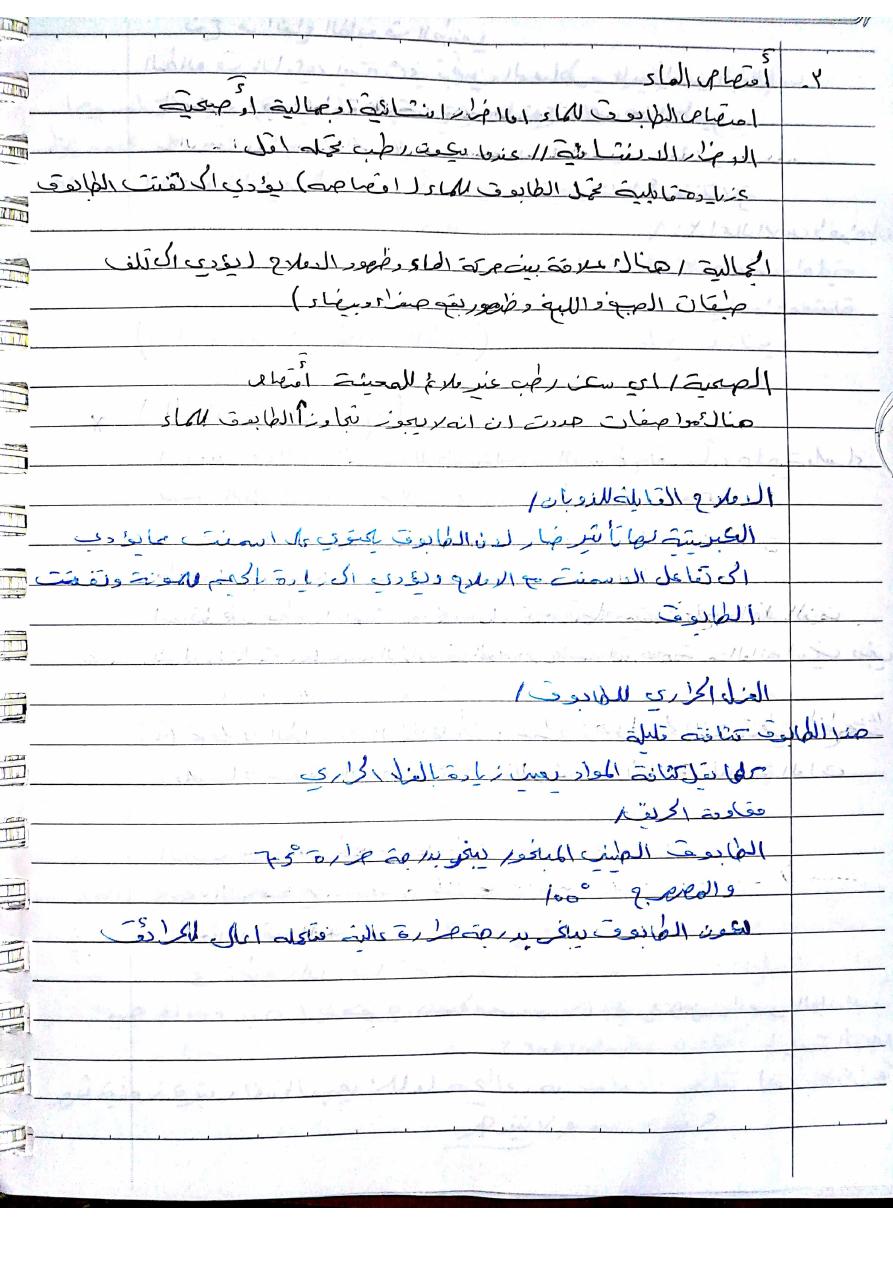 ٢. أمتصاص الماء
امتصاص الطابوق للماء اما اضرار انشائية او جمالية أو صحية
الاضرار الانشائية // عندما يكون رطب تحمله اقل :.
عزيادة قابلية تحمل الطابوق للماء ( امتصاصه ) يؤدي الى تفتت الطابوق
الجمالية / هناك علاقة بين حركة الماء وظهور الاملاح ( يؤدي الى تلف
طبقات الصبغ و اللبخ و ظهور بقع صفراء وبيضاء )
الصحية / اي سكن رطب غير ملائم للمعيشة
هناك مواصفات حددت ان انه لا يجوز تجاوز أمتصاص الطابوق للماء
الاملاح القابلة للذوبان /
الكبريتية لها تأثير ضار لان الطابوق يحتوي على اسمنت مما يؤدي
الى تفاعل الاسمنت مع الاملاح ويؤدي الى زيادة بالحجم للمونة وتفتت
الطابوق
العزل الحراري للطابوق /
هذا الطابوق كثافته قليلة
كلما تقل كثافة المواد يعني زيادة بالعزل الحراري
مقاومة الحريق /
الطابوق الطيني المفخور يفخر بدرجة حرارة
والمصرج °١٠٠
لكون الطابوق يفخر بدرجة حرارة عالية فتحمله اعلى للحرائق